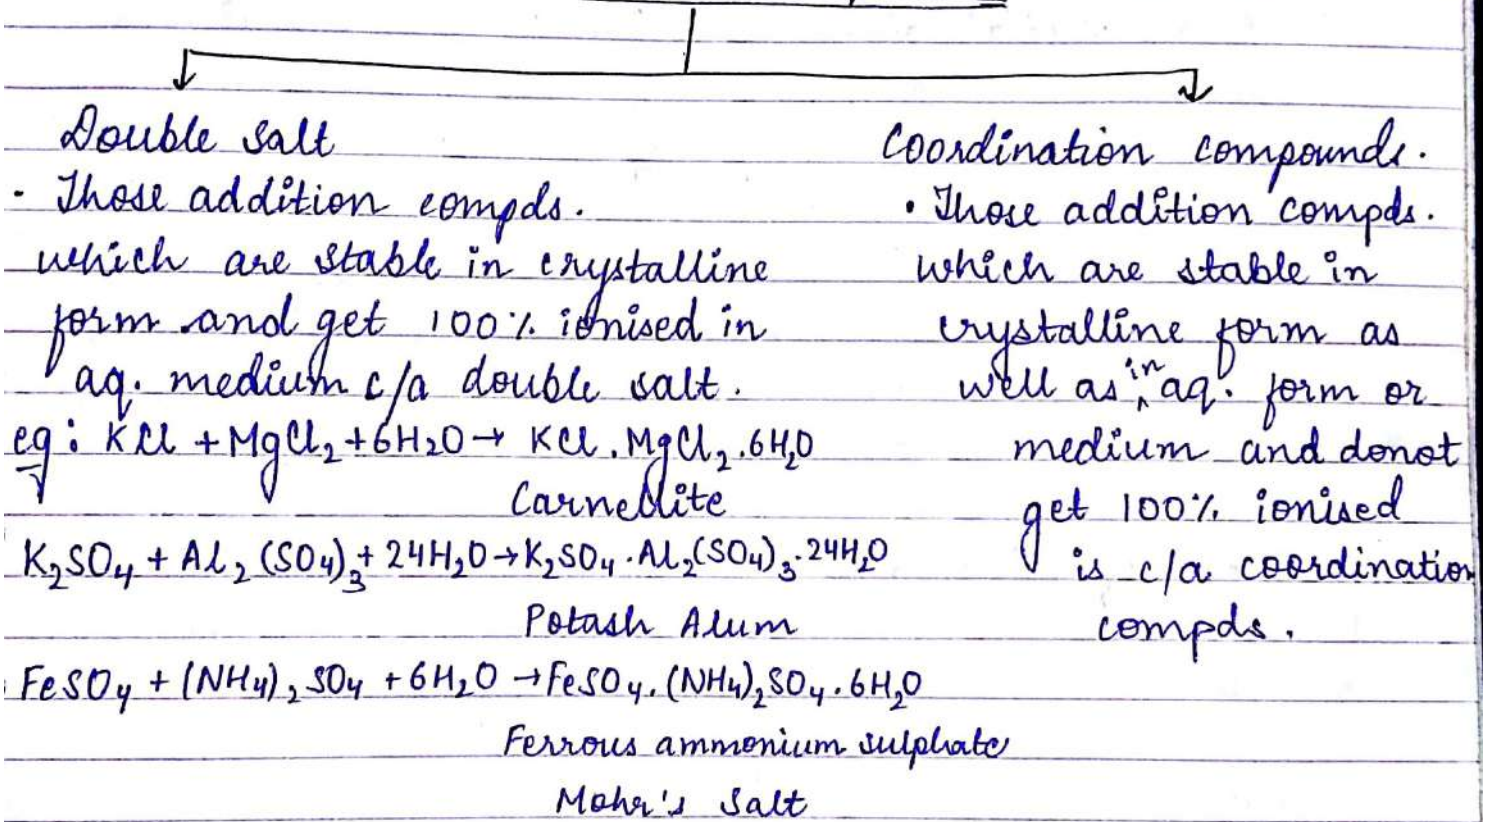 Double salt
· Those addition compds.
which are stable in crystalline
form and get 100% ionised in
aq. medium c/a double salt.
eg: KCl + MgCl₂ + 6H₂O → KCl . MgCl₂ . 6H₂O
Carnellite
K₂SO₄ + Al₂(SO₄)₃ + 24H₂O → K₂SO₄ . Al₂(SO₄)₃ . 24H₂O
Potash Alum
FeSO₄ + (NH₄)₂SO₄ + 6H₂O → FeSO₄ . (NH₄)₂SO₄ . 6H₂O
Ferrous ammonium sulphate
Mohr's Salt
Coordination compounds.
• Those addition compds.
which are stable in
crystalline form as
well as in aq. form or
medium and donot
get 100% ionised
is c/a coordination
compds.